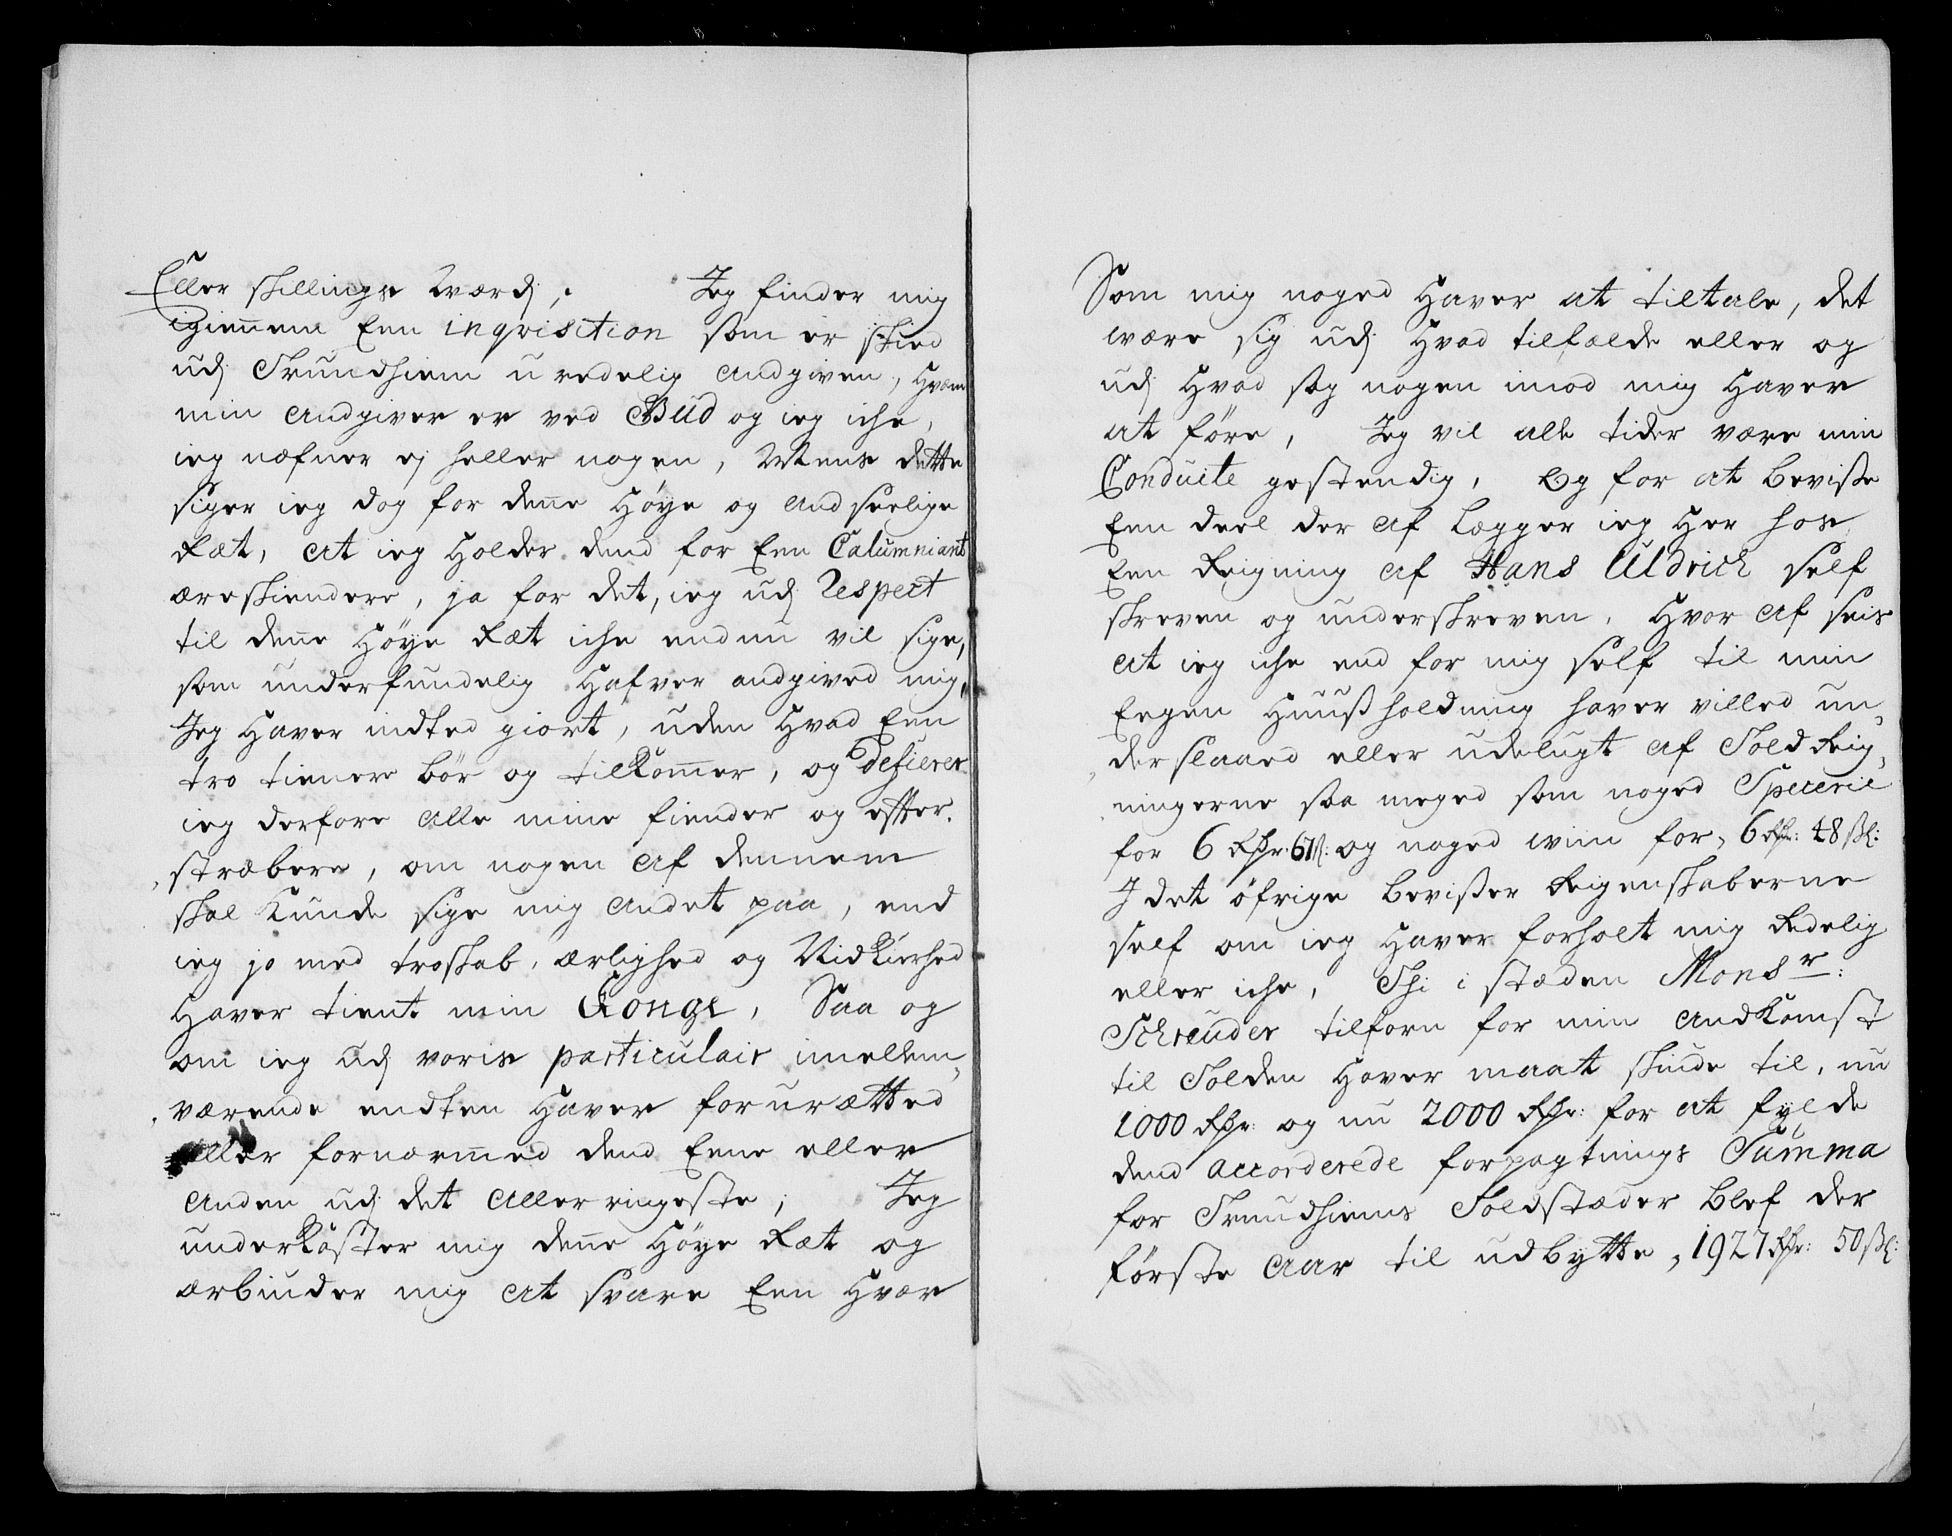 Eller skillings Værdj; Jeg finder mig
igiennem Een inqvisition som er skied
udj Trundhiem uredelig andgiven, Hvem
min Andgiver er ved Gud og ieg iche,
ieg nefner ej heller nogen, Mens dette
siger ieg dog for denne Høye og andseelige
Ræt, at ieg Holder dend for Een Calumniant
æreskiendere, ja for det, ieg udj Respect
til denne Høye Ræt iche endnu vil sige,
som underfundelig Hafver andgived mig,
Jeg Haver indted giort, uden Hvad Een
tro tienere bør og tilkommer, og defierer
ieg derfore alle mine fiender og efter-
stræbere, om nogen af dennem
skal kunde sige mig andet paa, end
ieg jo med troskab, ærlighed og Nidkierhed
Haver tient min Konge, Saa og
om ieg udj voris particulair imellem,
værende endten Haver forurætted
eller fornermed dend Eene eller
anden udj det allerringeste; Jeg
underkaster mig denne Høye Ræt og
ærbiuder mig at svare Een Hver
Som mig noged Haver at tiltale, det
være sig udj Hvad tilfælde eller og
udj Hvad sag nogen imod mig Haver
at føre, Jeg vil alle tider være min
Conduite gestendig, Og for at bevisse
Een deel der af legger ieg Her hos
Een Reigning af Hans Uldrich self
skreven og underskreven, Hvor af seis
at ieg iche end for mig self til min
Eegen Huusholdning haver villed un,
derslaaed eller udelugt af Told Reig,
ningerne saa meged som noged Specerie
for 6 Rdr: 67s: og noged viin for, 6 Rdr: 48 sk:
I det øfrige bevisser Reigenskaberne
self om ieg Haver forholt mig Redelig
eller iche, Thi i stæden Monsr:
Schreuder tilforn for min Andkomst
til Tolden Haver maat skiude til, nu
1000 Rdr: og nu 2000 Rdr: for at fylde
dend accorderede forpagtnings Summa
for Trundhiems Toldstæder blef der
første Aar til udbytte, 1927 Rdr: 50 sk: